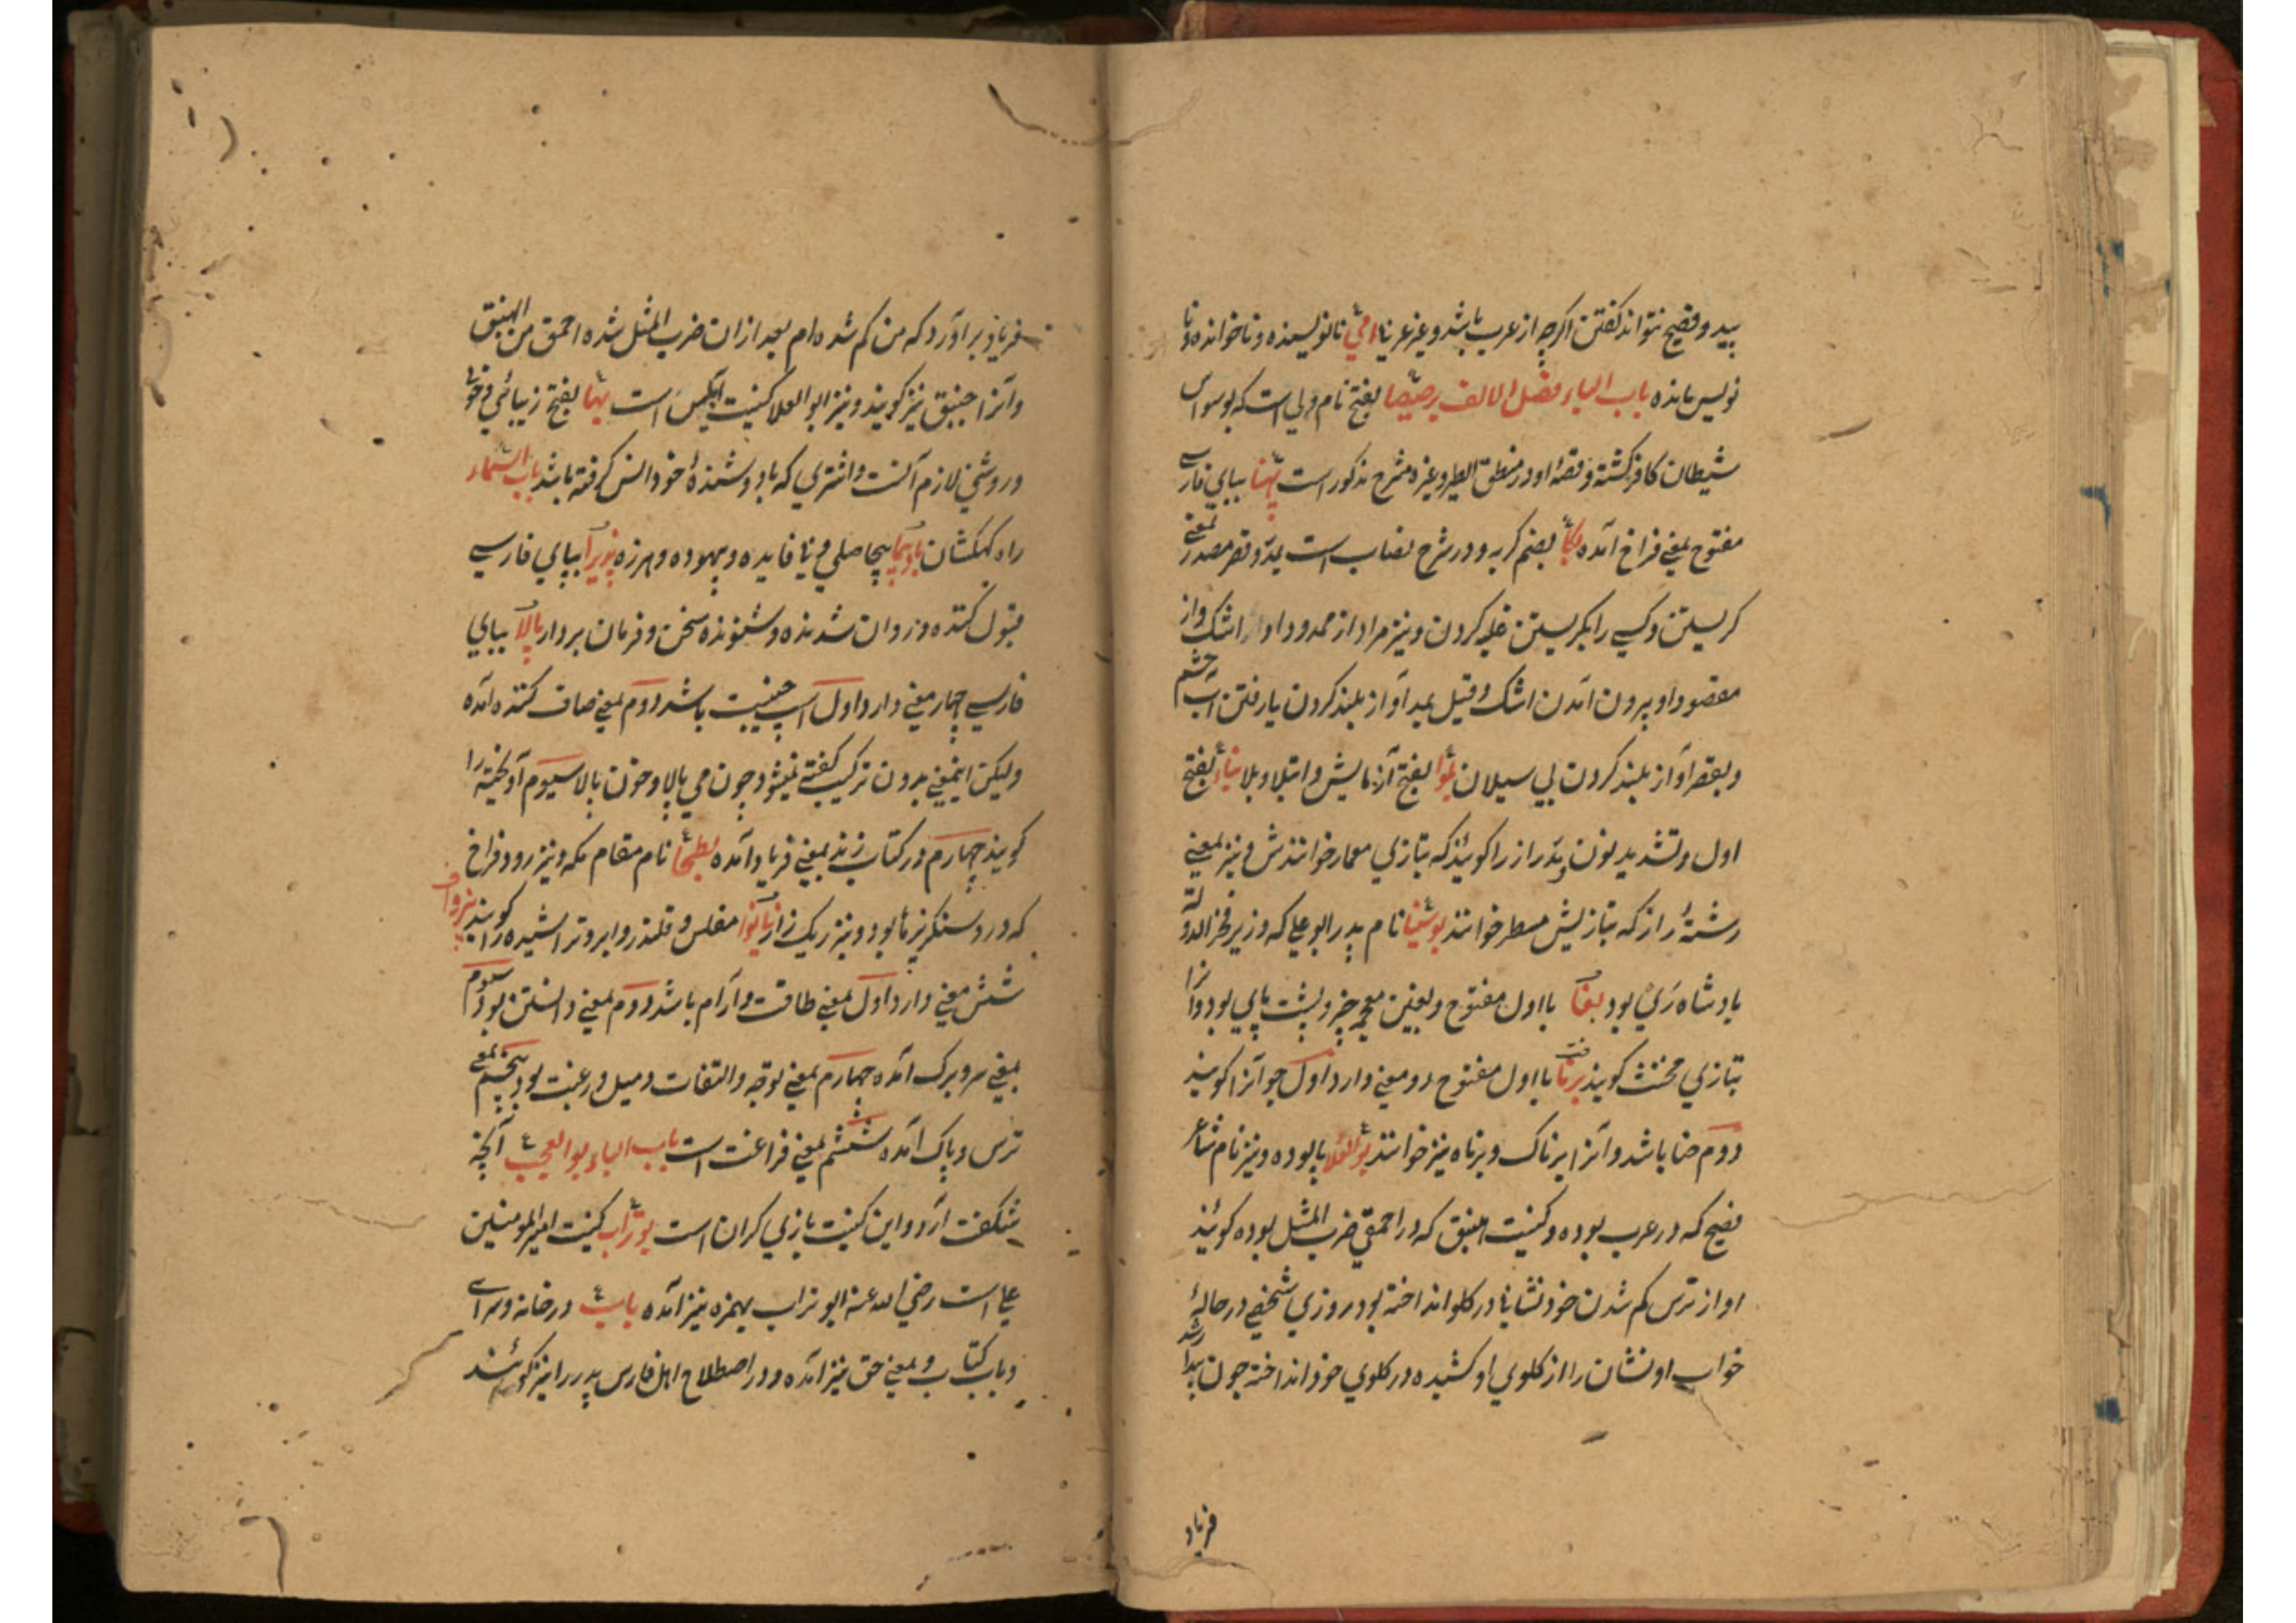 پید و فصیح نتواند گفتن اگرچه از عرب باشد و غیر عربنا امّی نانویسنده و ناخوانده و نا
نویس مانده باب الباء فصل الالف برصیصا بفتح نام ولی است که بوسواس
شیطان کافر کشته و قصهٔ او در منطق الطیر و غیره مشرح مذکور است پهنا ببای فارسے
مفتوح بمعنی فراخ آمده بکا بضم کریه و در شرح نصاب است بمد و قصر مصدر بمعنے
کریستن و کسے را بکریستن غلبه کردن و نیز مراد از ممدود او از اشک و از
مقصود او برون آمدن اشک و قیل بمد آواز بلند کردن یا رفتن آب چشم
و بقصر آواز بلند کردن بی سیلان بلوا بفتح آزمایش و ابتلا و بلا بناء بفتح
اول و تشدید نون و مد راز را کویند که بتازی معمار خوانندش و نیز بمعنے
رشتهٔ راز که بتازیش مسطر خوانند بوسینا نام پدر ابو علی که وزیر فخر الدوله
بادشاه ری بود بغا با اول مفتوح و بغین معجمه حیز و پشت پایی بود و آنرا
بتازی مخنث کویند برنا با اول مفتوح دو معنی دارد اول جوانرا کویند
دوم حنا باشد و آنرا یرناک و برناه نیز خوانند بو العلا پالوده و نیز نام شاعر
فصیح که در عرب بوده و کنیت هبنق که در احمقی ضرب المثل بوده کویند
او از ترس کم شدن خود نشانها در کلو انداخته بود روزی شخصے در حالهٔ
خواب او نشان را از کلوی او کشیده در کلوی خود انداخته چون بیدار شد
فریاد
فریاد بر آورد که من کم شده ام بعد ازان ضرب المثل شده احمق من الهبنق
و آنرا جنبق نیز کویند و نیز ابو العلا کنیت است بهأ بفتح زیبائی و خوبے
و روشنی لازم آنست و اشتری که با دوشندهٔ خود انس کرفته باشد باب السماء
راه کهکشان بادپیما بیحاصلی و بی فایده و بیهوده و هرزه پذیرا ببای فارسے
قبول کننده و روان شدنده و شنونده سخن و فرمان بردار پالا ببای
فارسے چهار معنی دارد اول اسپ جنیبت باشد دوم بمعنی صاف کننده آمده
ولیکن اینمعنے بدون ترکیب کفتے نمیشود چون می پالا و خون پالا سیوم آویخته را
کویند چهارم در کتاب زند بمعنے فریاد آمده بطحا نام مقام مکه و نیز رود فراخ
که درو سنکریزها بود و نیز ریک زار بانوا مفلس و قلندر و ابرو تراشیده را کویند پروا
شش معنے دارد اول بمعنے طاقت و آرام باشد دوم بمعنی دانستن بود سیوم
بمعنے سر و برک آمده چهارم بمعنی توجه و التفات و میل و رغبت بود پنجم بمعنے
ترس و باک آمده ششم بمعنے فراغت است باب الباء بوالعجب آنچه
شکفت آرد و این کنیت بازی کران است بوتراب کنیت امیر المومنین
علی است رضی الله عنه ابو تراب بهمزه نیز آمده باب در خانه و سراے
و باب کتاب و بمعنی حق نیز آمده و در اصطلاح اهل فارس پدر را نیز کویند